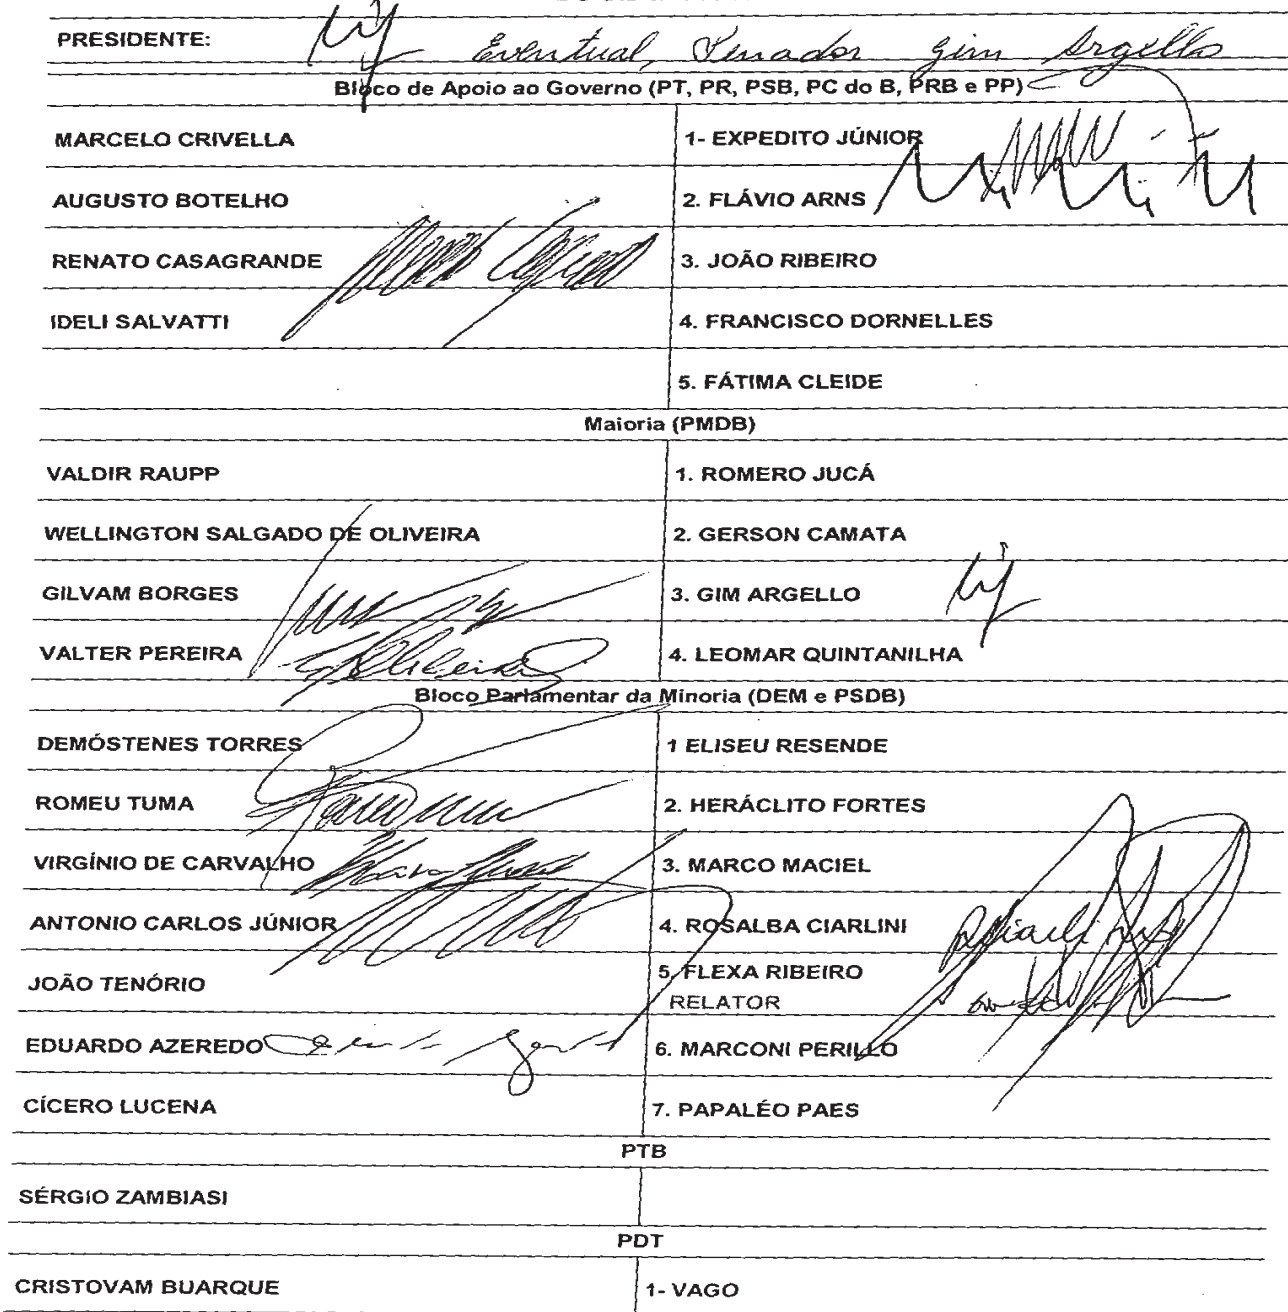 PRESIDENTE: Eventual, Senador Gim Argello
Bloco de Apoio ao Governo (PT, PR, PSB, PC do B, PRB e PP)
MARCELO CRIVELLA 1- EXPEDITO JÚNIOR
AUGUSTO BOTELHO 2. FLÁVIO ARNS
RENATO CASAGRANDE 3. JOÃO RIBEIRO
IDELI SALVATTI 4. FRANCISCO DORNELLES
5. FÁTIMA CLEIDE
Maioria (PMDB)
VALDIR RAUPP 1. ROMERO JUCÁ
WELLINGTON SALGADO DE OLIVEIRA 2. GERSON CAMATA
GILVAM BORGES 3. GIM ARGELLO
VALTER PEREIRA 4. LEOMAR QUINTANILHA
Bloco Parlamentar da Minoria (DEM e PSDB)
DEMÓSTENES TORRES 1 ELISEU RESENDE
ROMEU TUMA 2. HERÁCLITO FORTES
VIRGÍNIO DE CARVALHO 3. MARCO MACIEL
ANTONIO CARLOS JÚNIOR 4. ROSALBA CIARLINI
JOÃO TENÓRIO 5. FLEXA RIBEIRO
RELATOR
EDUARDO AZEREDO 6. MARCONI PERILLO
CÍCERO LUCENA 7. PAPALÉO PAES
PTB
SÉRGIO ZAMBIASI
PDT
CRISTOVAM BUARQUE 1- VAGO